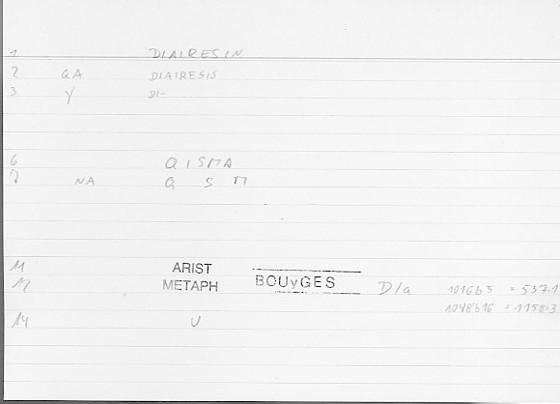 1 DIAIRESIN
2 QA DIAIRESIS
3 Y DI-
6 QISMA
7 NA Q S M
11 ARIST
12 METAPH BOUyGES D/a 1016b3 = 537.1
1048b16 = 1158.3
14 U